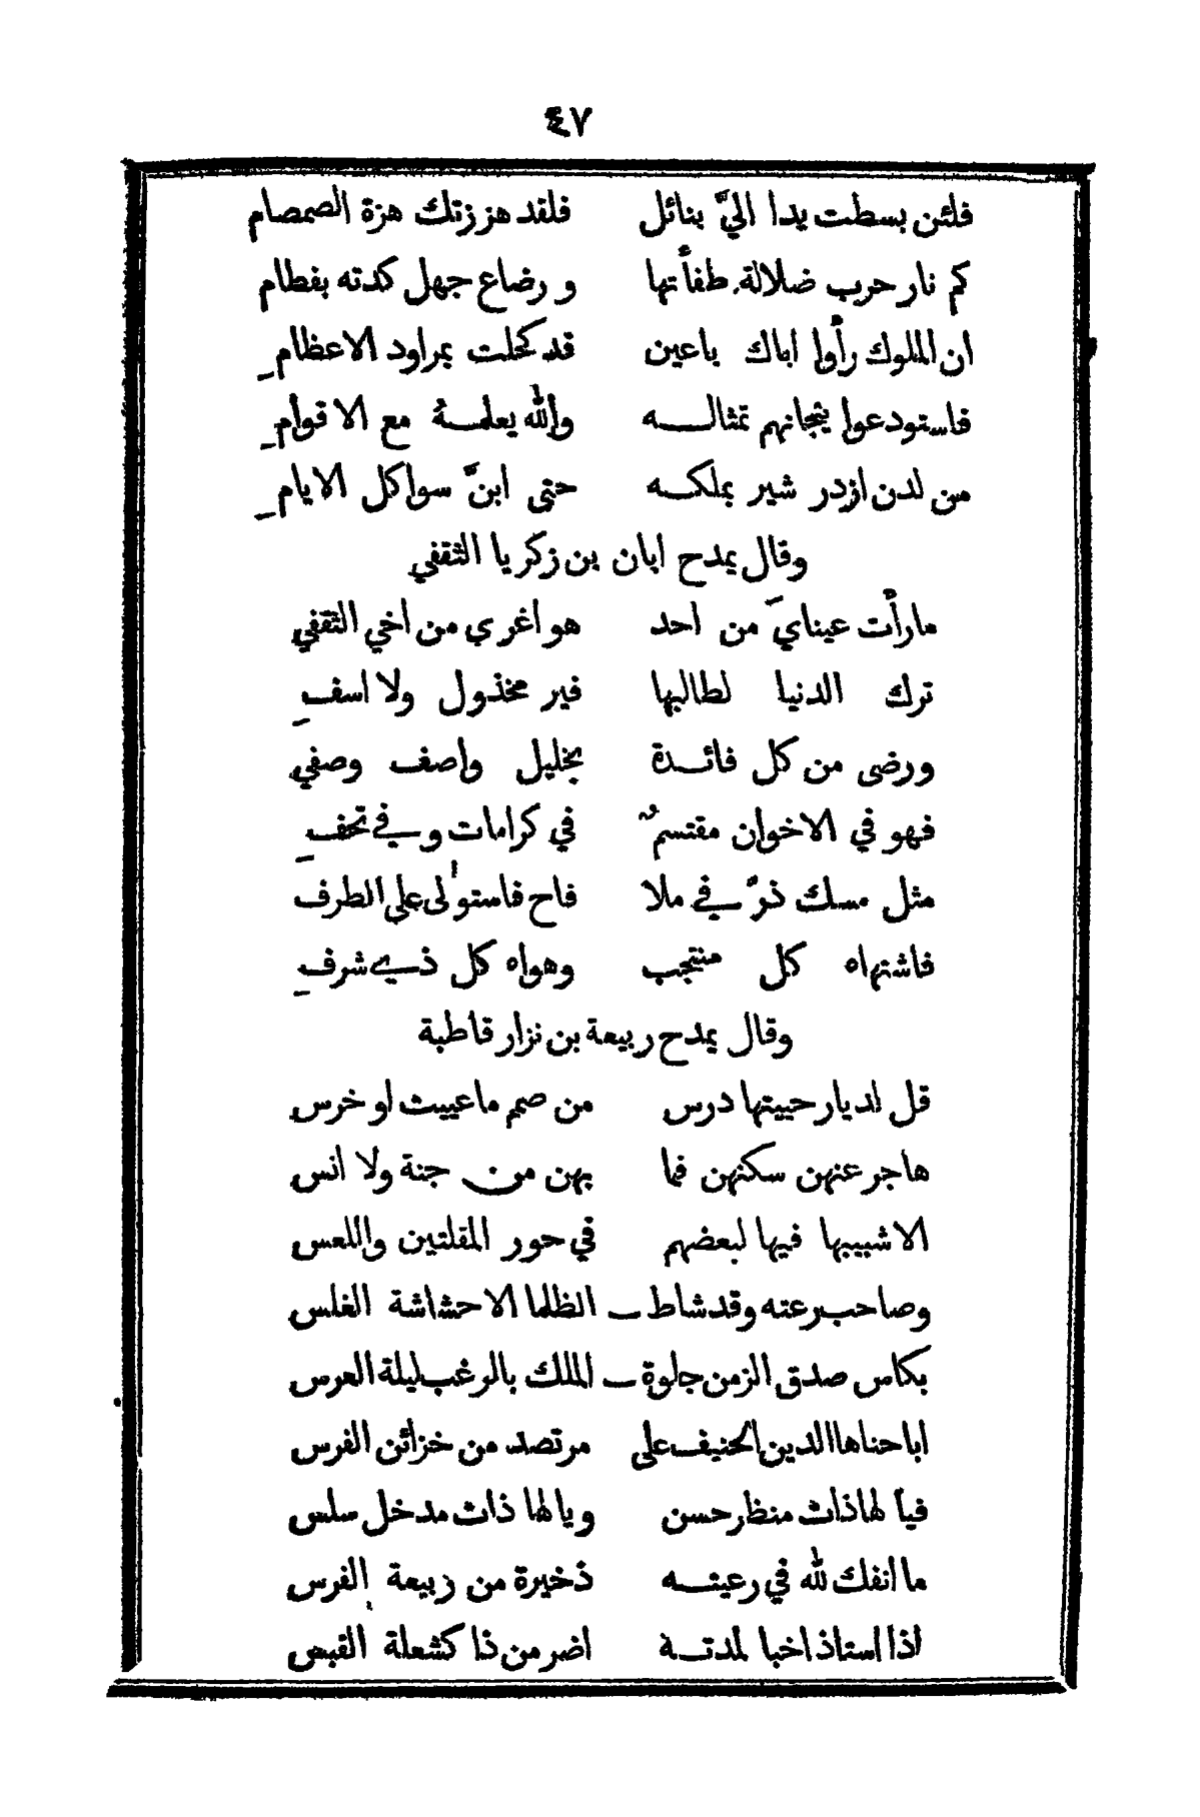 ٤٧
فلئن بسطت يدا اليَّ بنائل فلقد هززتك هزة الصمصام
كم نار حرب ضلالة طفأتها ورضاع جهل كدته بفطام
ان الملوك رأوا اباك باعين قد كحلت بمراود الاعظام
فاستودعوا يتجانهم تمثاله والله يعلمه مع الاقوام
من لدن ازدر شير بملكه حتى ابنَّ سواكل الايام
وقال يمدح ابان بن زكريا الثقفي
مارأت عينايَ من احد هو اغرى من اخي الثقفي
ترك الدنيا لطالبها فير مخذول ولا اسف
ورضى من كل فائدة بخليل واصف وصفي
فهو في الاخوان مقتسمٌ في كرامات وفي تحف
مثل مسك ذرَّ في ملا فاح فاستولى على الطرف
فاشتهاه كل منتجب وهواه كل ذي شرف
وقال يمدح ربيعة بن نزار قاطبة
قل لديار حييتها درس من صم ماعييت او خرس
هاجر عنهن سكنهن فما بهن من جنة ولا انس
الاشبيبها فيها لبعضهم في حور المقلتين واللعس
وصاحب رعته وقد شاط ـ الظلما الاحشاشة الغلس
بكاس صدق الزمن جلوة ـ الملك بالرغب ليلة العرس
اباحناها الدين الحنيف على مرتصد من خزائن الفرس
فيا لها ذات منظر حسن ويا لها ذات مدخل سلس
ما انفك لله في رعيته ذخيرة من ربيعة الفرس
اذا استاذ اخبا لمدته اضر من ذا كشعلة القبس